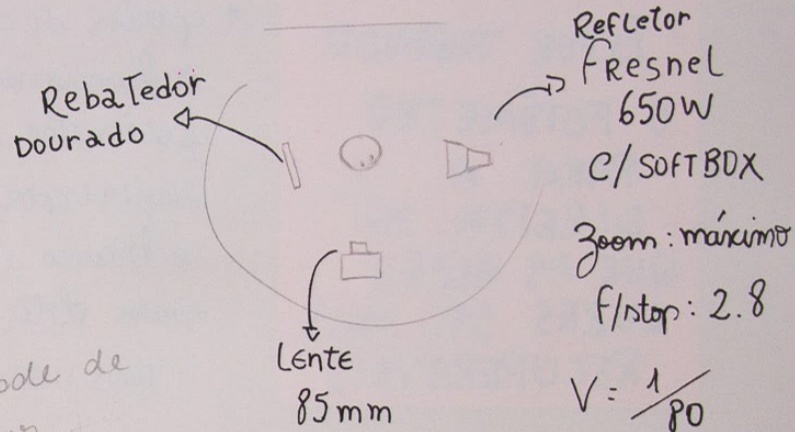 Rebatedor
Dourado
Refletor
Fresnel
650W
C/ SOFTBOX
Zoom: máximo
f/stop: 2.8
V = 1/80
Lente
85mm
ode de